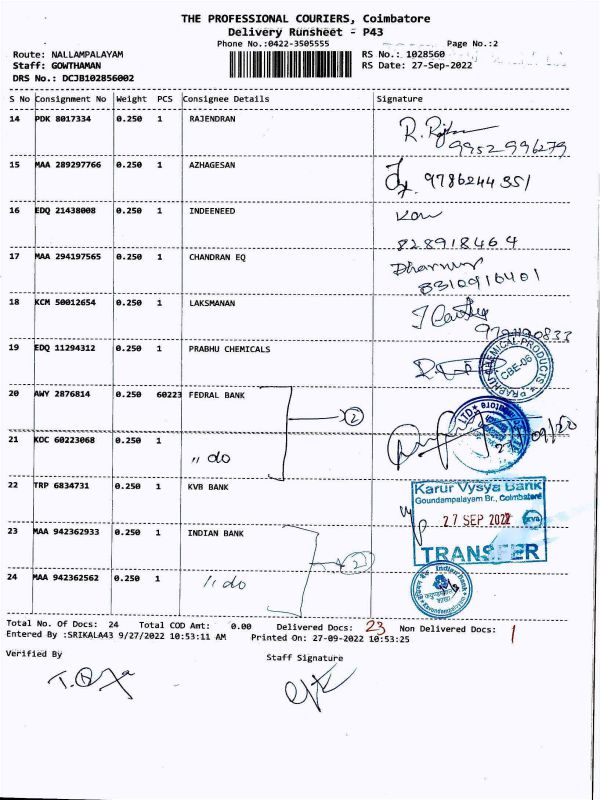 THE PROFESSIONAL COURIERS, Coimbatore
Delivery Runsheet - P43
Phone No.:0422-3505555
Page No.:2
Route: NALLAMPALAYAM
RS No.: 1028560
Staff: GOWTHAMAN
RS Date: 27-Sep-2022
DRS No.: DCJB102856002
S No Consignment No Weight PCS Consignee Details Signature
14 PDK 8017334 0.250 1 RAJENDRAN
9952996279
15 MAA 289297766 0.250 1 AZHAGESAN
9786244351
16 EDQ 21438008 0.250 1 INDEENEED
828918464
17 MAA 294197565 0.250 1 CHANDRAN EQ
8310916401
18 KCM 50012654 0.250 1 LAKSMANAN
19 EDQ 11294312 0.250 1 PRABHU CHEMICALS
PRABHU CHEMICAL PRODUCTS
CBE-06
20 AWY 2876814 0.250 60223 FEDRAL BANK
2
21 KOC 60223068 0.250 1
,, do
22 TRP 6834731 0.250 1 KVB BANK
Karur Vysya Bank
Goundampalayam Br., Coimbatore
27 SEP 2022
TRANSFER
23 MAA 942362933 0.250 1 INDIAN BANK
2
24 MAA 942362562 0.250 1
,, do
Indian Bank
Total No. Of Docs: 24 Total COD Amt: 0.00 Delivered Docs: 23 Non Delivered Docs: 1
Entered By :SRIKALA43 9/27/2022 10:53:11 AM Printed On: 27-09-2022 10:53:25
Verified By
Staff Signature